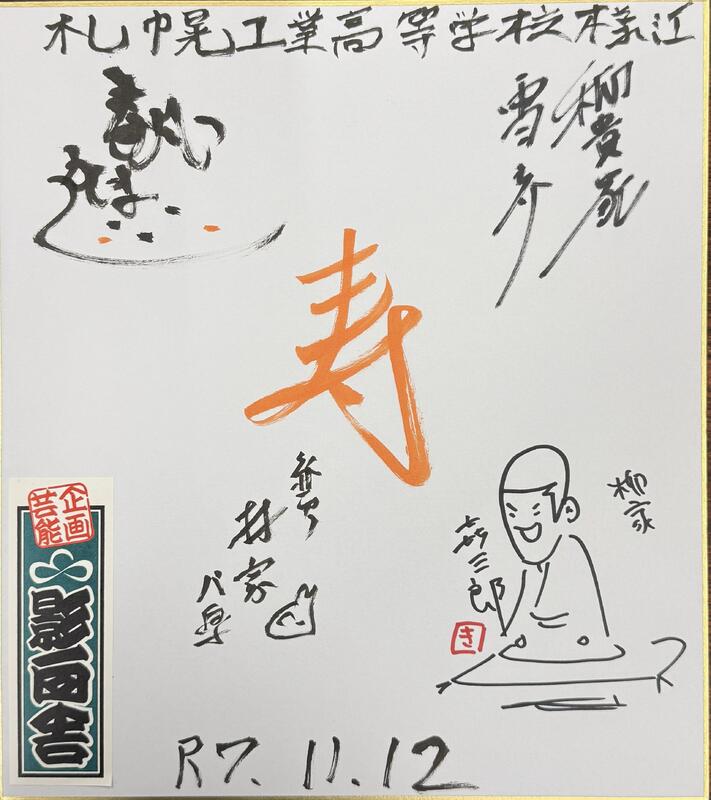 札幌工業高等学校様江
柳貴家
雪之介
寿
柳家
㐂三郎
き
林家
八楽
企画
芸能
影画舎
R7.11.12